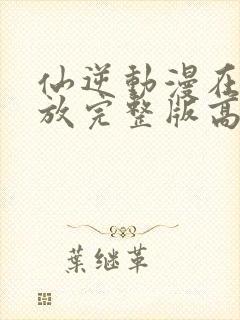 仙逆動漫在
放完整版高
葉继革